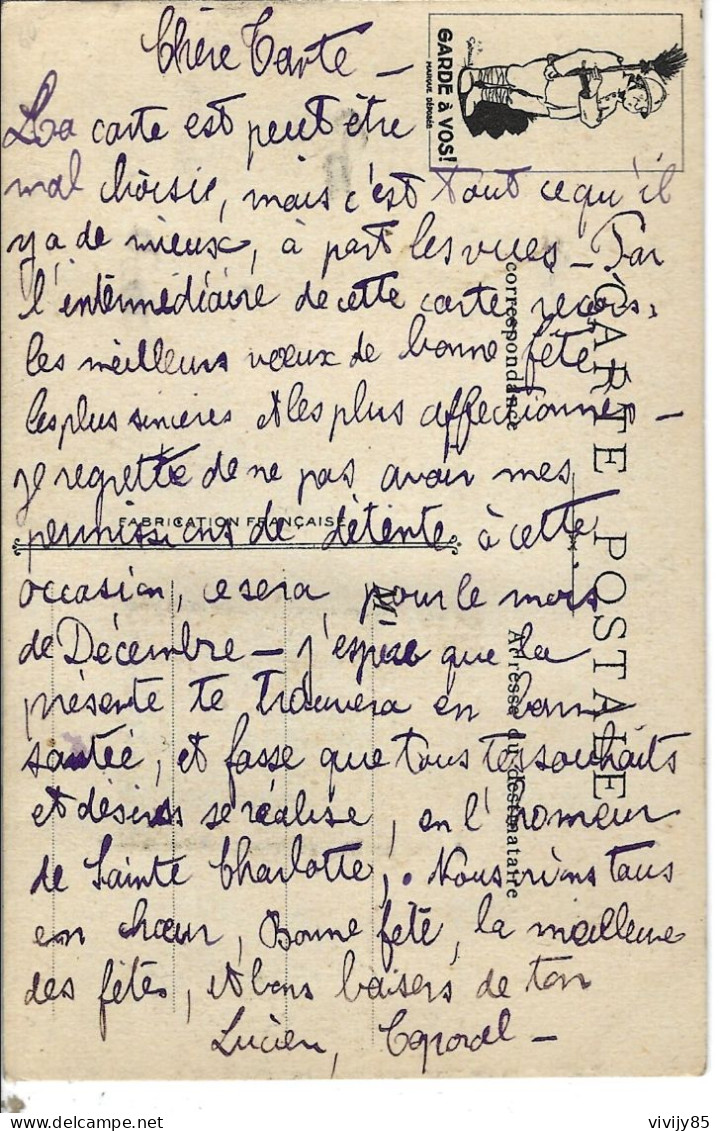 Chère Tante –
La carte est peut être
mal choisie, mais c'est tout ce qu'il
y a de mieux, à part les vues – Par
l'intermédiaire de cette carte, reçois,
les meilleurs voeux de bonne fête
les plus sincères et les plus affectionnés –
Je regrette de ne pas avoir mes
permissions de détente à cette
occasion, ce sera pour le mois
de Décembre – j'espère que la
présente te trouvera en bonne
santée, et fasse que tous tes souhaits
et désirs se réalise, en l'honneur
de Sainte Charlotte, . Nous crions tous
en choeur, Bonne fête, la meilleure
des fêtes, et bons baisers de ton
Lucien, Caporal –
GARDE à VOS!
MARQUE DÉPOSÉE
CARTE POSTALE
Correspondance
Adresse du destinataire
FABRICATION FRANÇAISE
M
delcampe.net
vivijy85